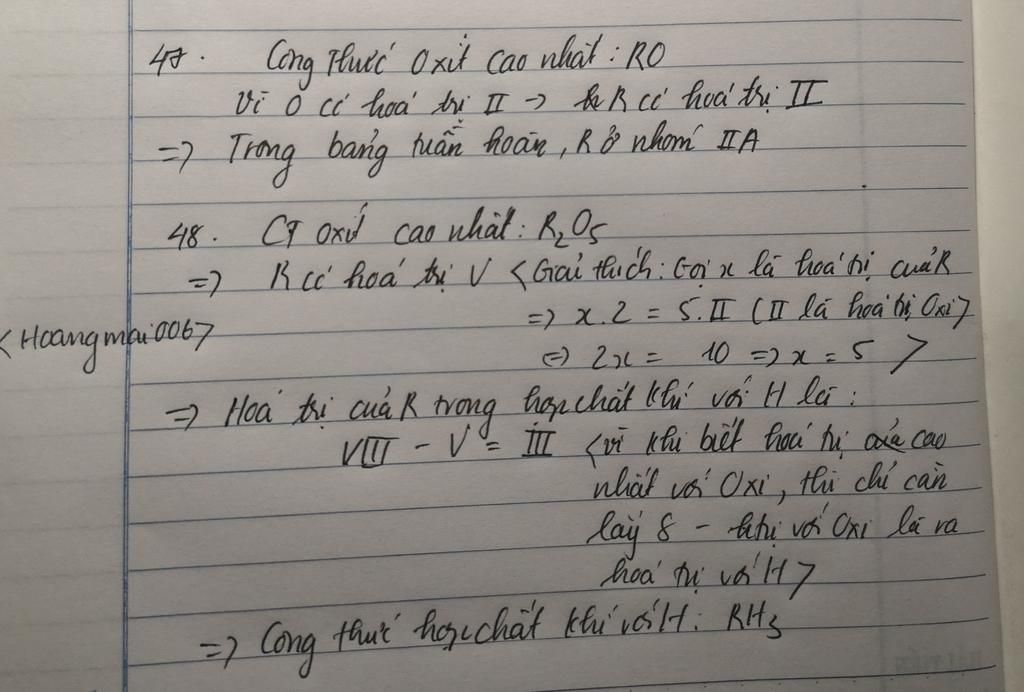 47. Công thức oxit cao nhất: RO
Vì O có hoá trị II → R có hoá trị II
=> Trong bảng tuần hoàn, R ở nhóm IIA
48. CT oxit cao nhất: R₂O₅
=> R có hoá trị V <Giải thích: Gọi x là hoá trị của R
=> x.2 = 5.II (II là hoá trị Oxi)
<Hoangmai006>
<=> 2x = 10 => x = 5 >
=> Hoá trị của R trong hợp chất khí với H là:
VIII - V = III <vì khi biết hoá trị cao
nhất với Oxi, thì chỉ cần
lấy 8 - htrị với Oxi là ra
hoá trị với H>
=> Công thức hợp chất khí với H: RH₃